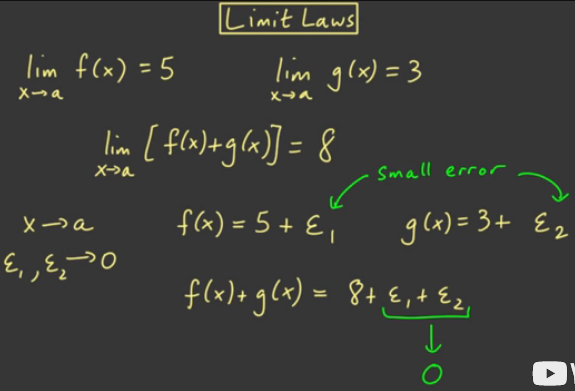 Limit Laws
lim f(x) = 5
x→a
lim g(x) = 3
x→a
lim [f(x)+g(x)] = 8
x→a
small error
x→a
f(x) = 5 + ε₁
g(x) = 3 + ε₂
ε₁, ε₂→0
f(x)+g(x) = 8+ ε₁ + ε₂
0